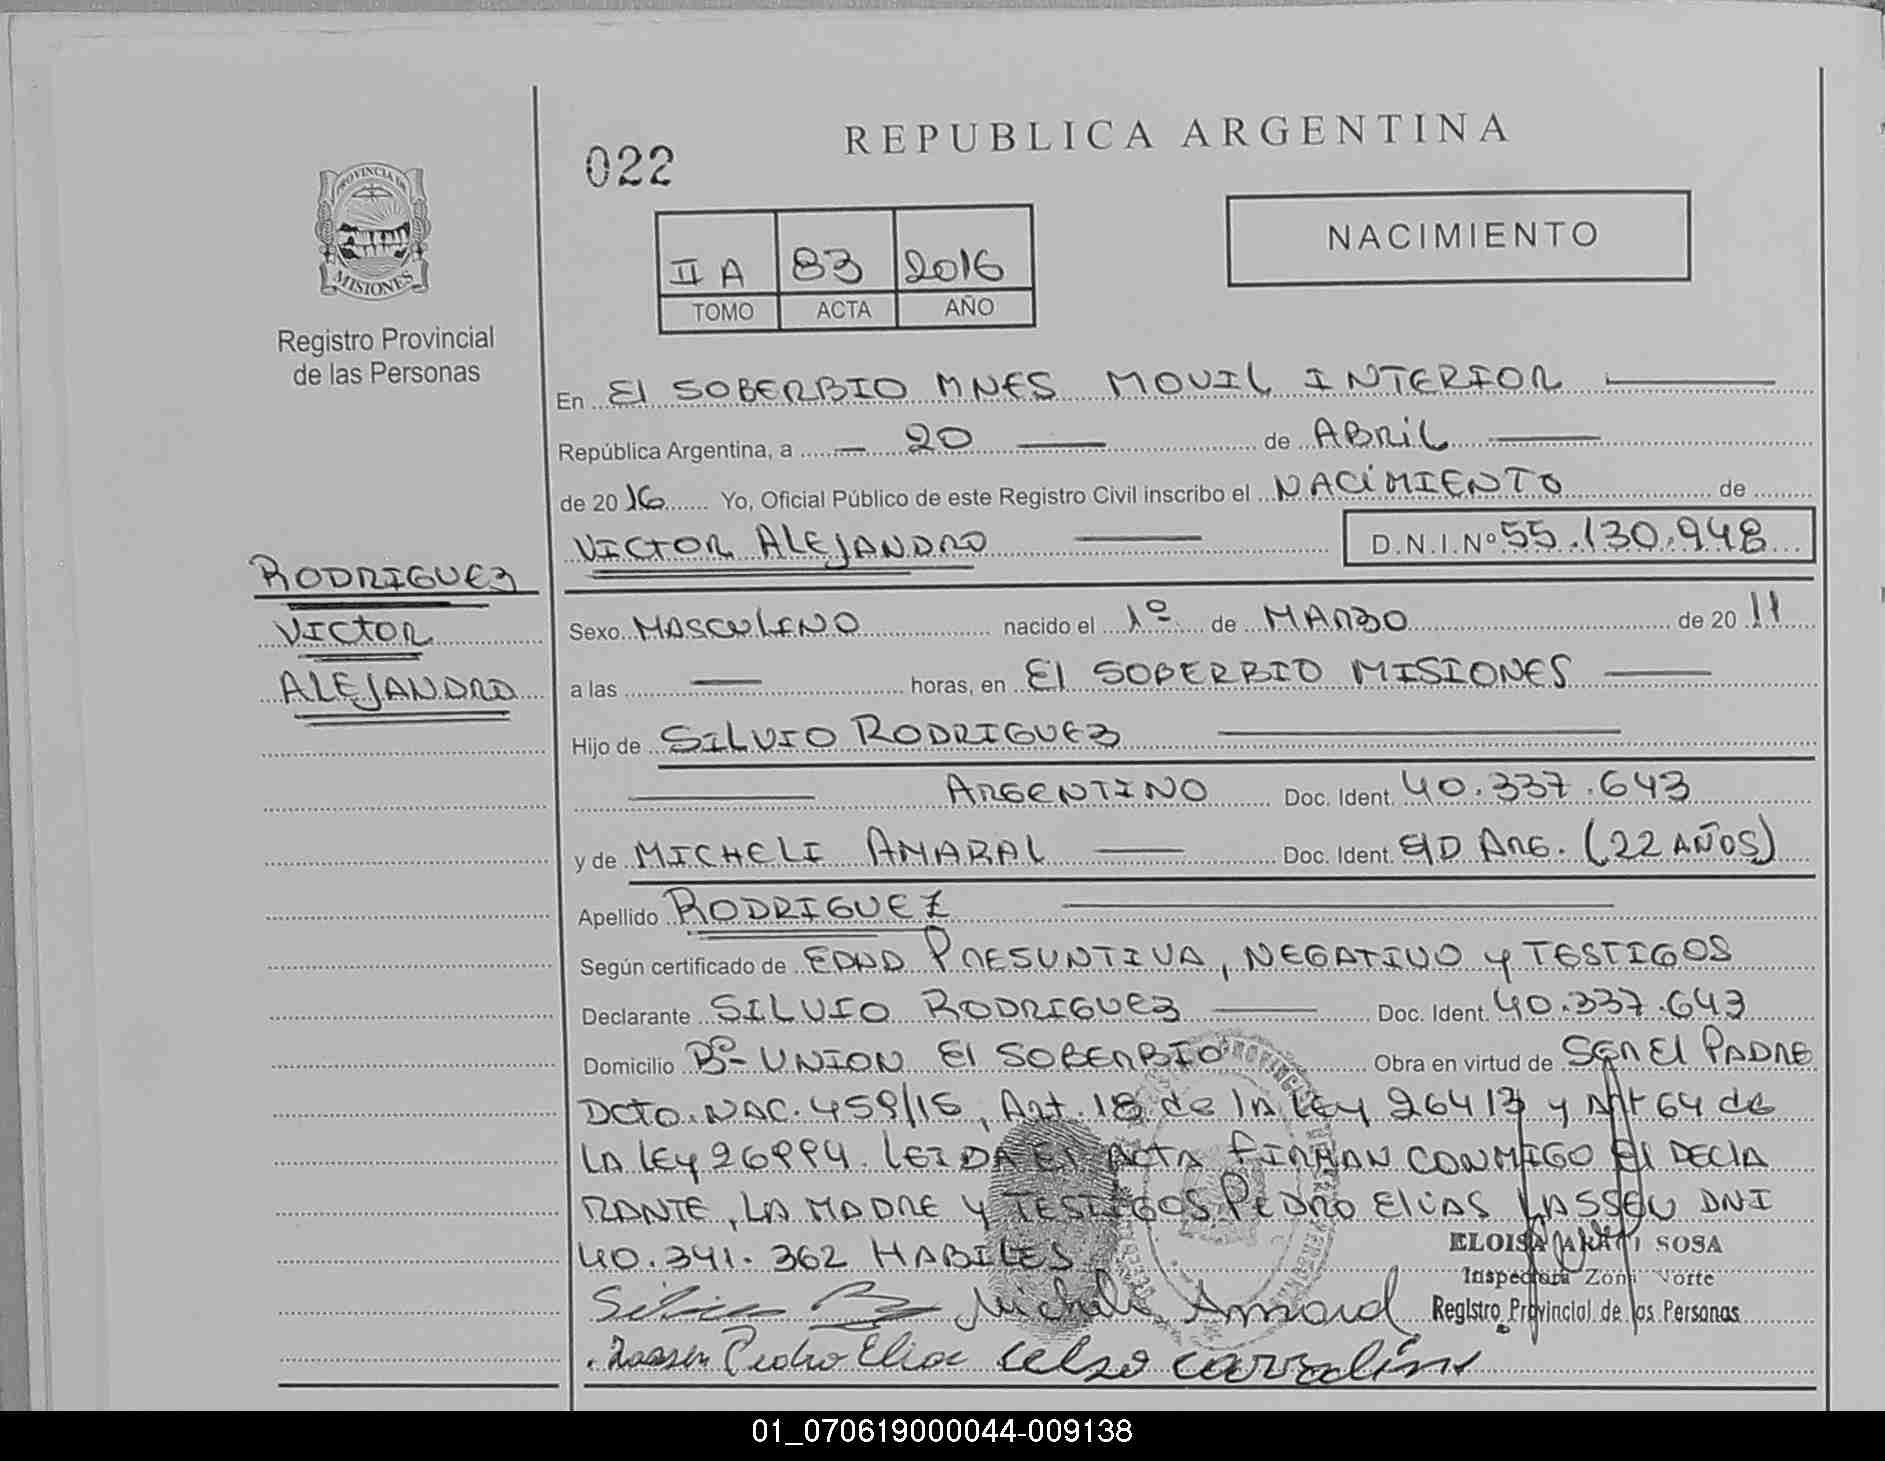 REPUBLICA ARGENTINA
022
PROVINCIA DE
MISIONES
Registro Provincial
de las Personas
NACIMIENTO
II A 83 2016
TOMO ACTA AÑO
En El SOBERBIO MNES MOVIL INTERIOR
República Argentina, a 20 de ABRIL
de 2016 Yo, Oficial Público de este Registro Civil inscribo el NACIMIENTO de
VICTOR ALEJANDRO D.N.I.Nº 55.130.948
RODRIGUEZ
VICTOR
ALEJANDRO
Sexo MASCULINO nacido el 1º de MARZO de 2011
a las horas, en El SOBERBIO MISIONES
Hijo de SILVIO RODRIGUEZ
ARGENTINO Doc. Ident. 40.337.643
y de MICHELI AMARAL Doc. Ident. S/D ARG. (22 AÑOS)
Apellido RODRIGUEZ
Según certificado de EDAD PRESUNTIVA, NEGATIVO y TESTIGOS
Declarante SILVIO RODRIGUEZ Doc. Ident. 40.337.643
Domicilio Bº- UNION El SOBERBIO Obra en virtud de SER El PADRE
DCTO. NAC. 459/15, Art. 18 de la Ley 26413 y Art 64 de
LA LEY 26994. LEIDA EL ACTA FIRMAN CONMIGO El DECLA
RANTE, LA MADRE y TESTIGOS PEDRO ELIAS LASSEN DNI
40.341.362 HABILES
ELOISA SOSA
Inspectora Zona Norte
Registro Provincial de las Personas
Micheli Amaral
Lassen Pedro Elias Celso
01_070619000044-009138